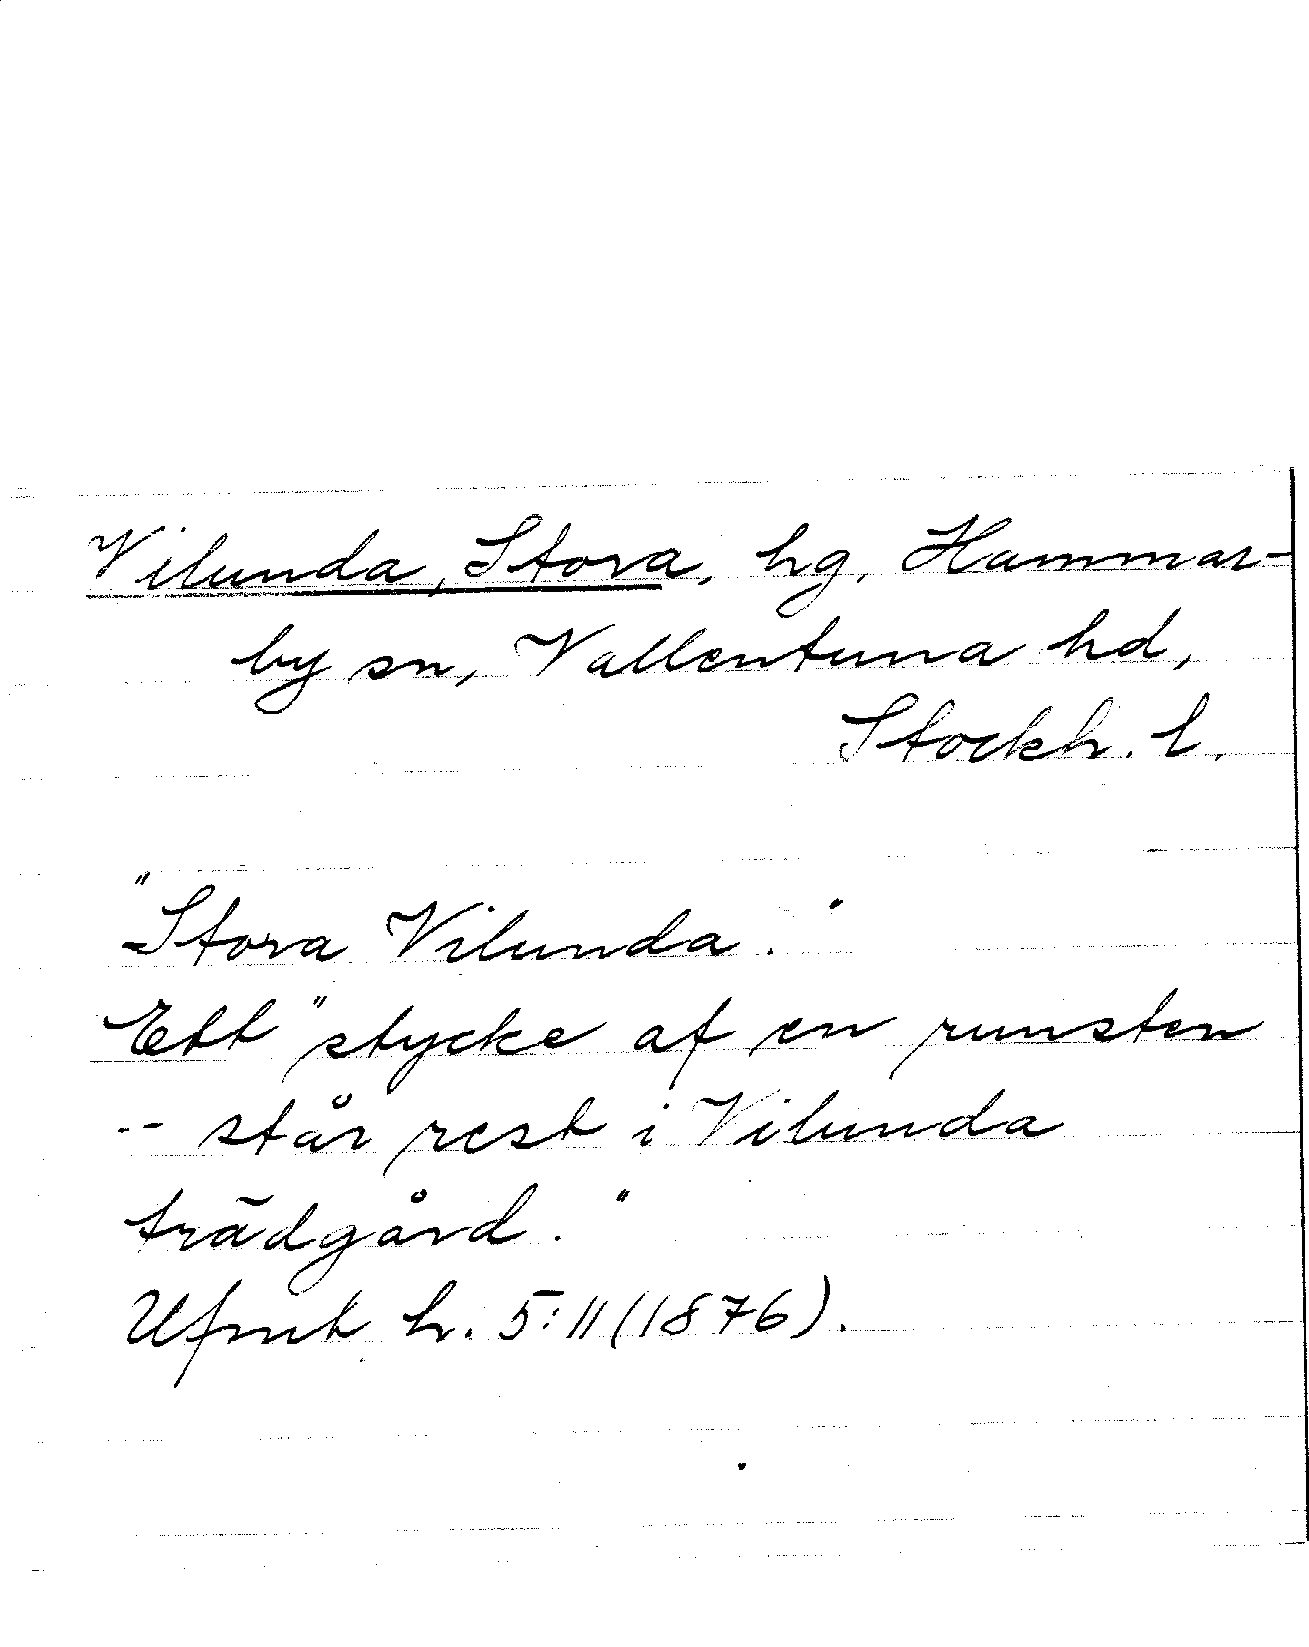 Vilunda, Stora, hg, Hammar-
by sn, Vallentuna hd,
Stockh. l.
"Stora Vilunda."
Ett "stycke af en runsten
-- står rest i Vilunda
trädgård."
Ufmt h. 5:11 (1876).